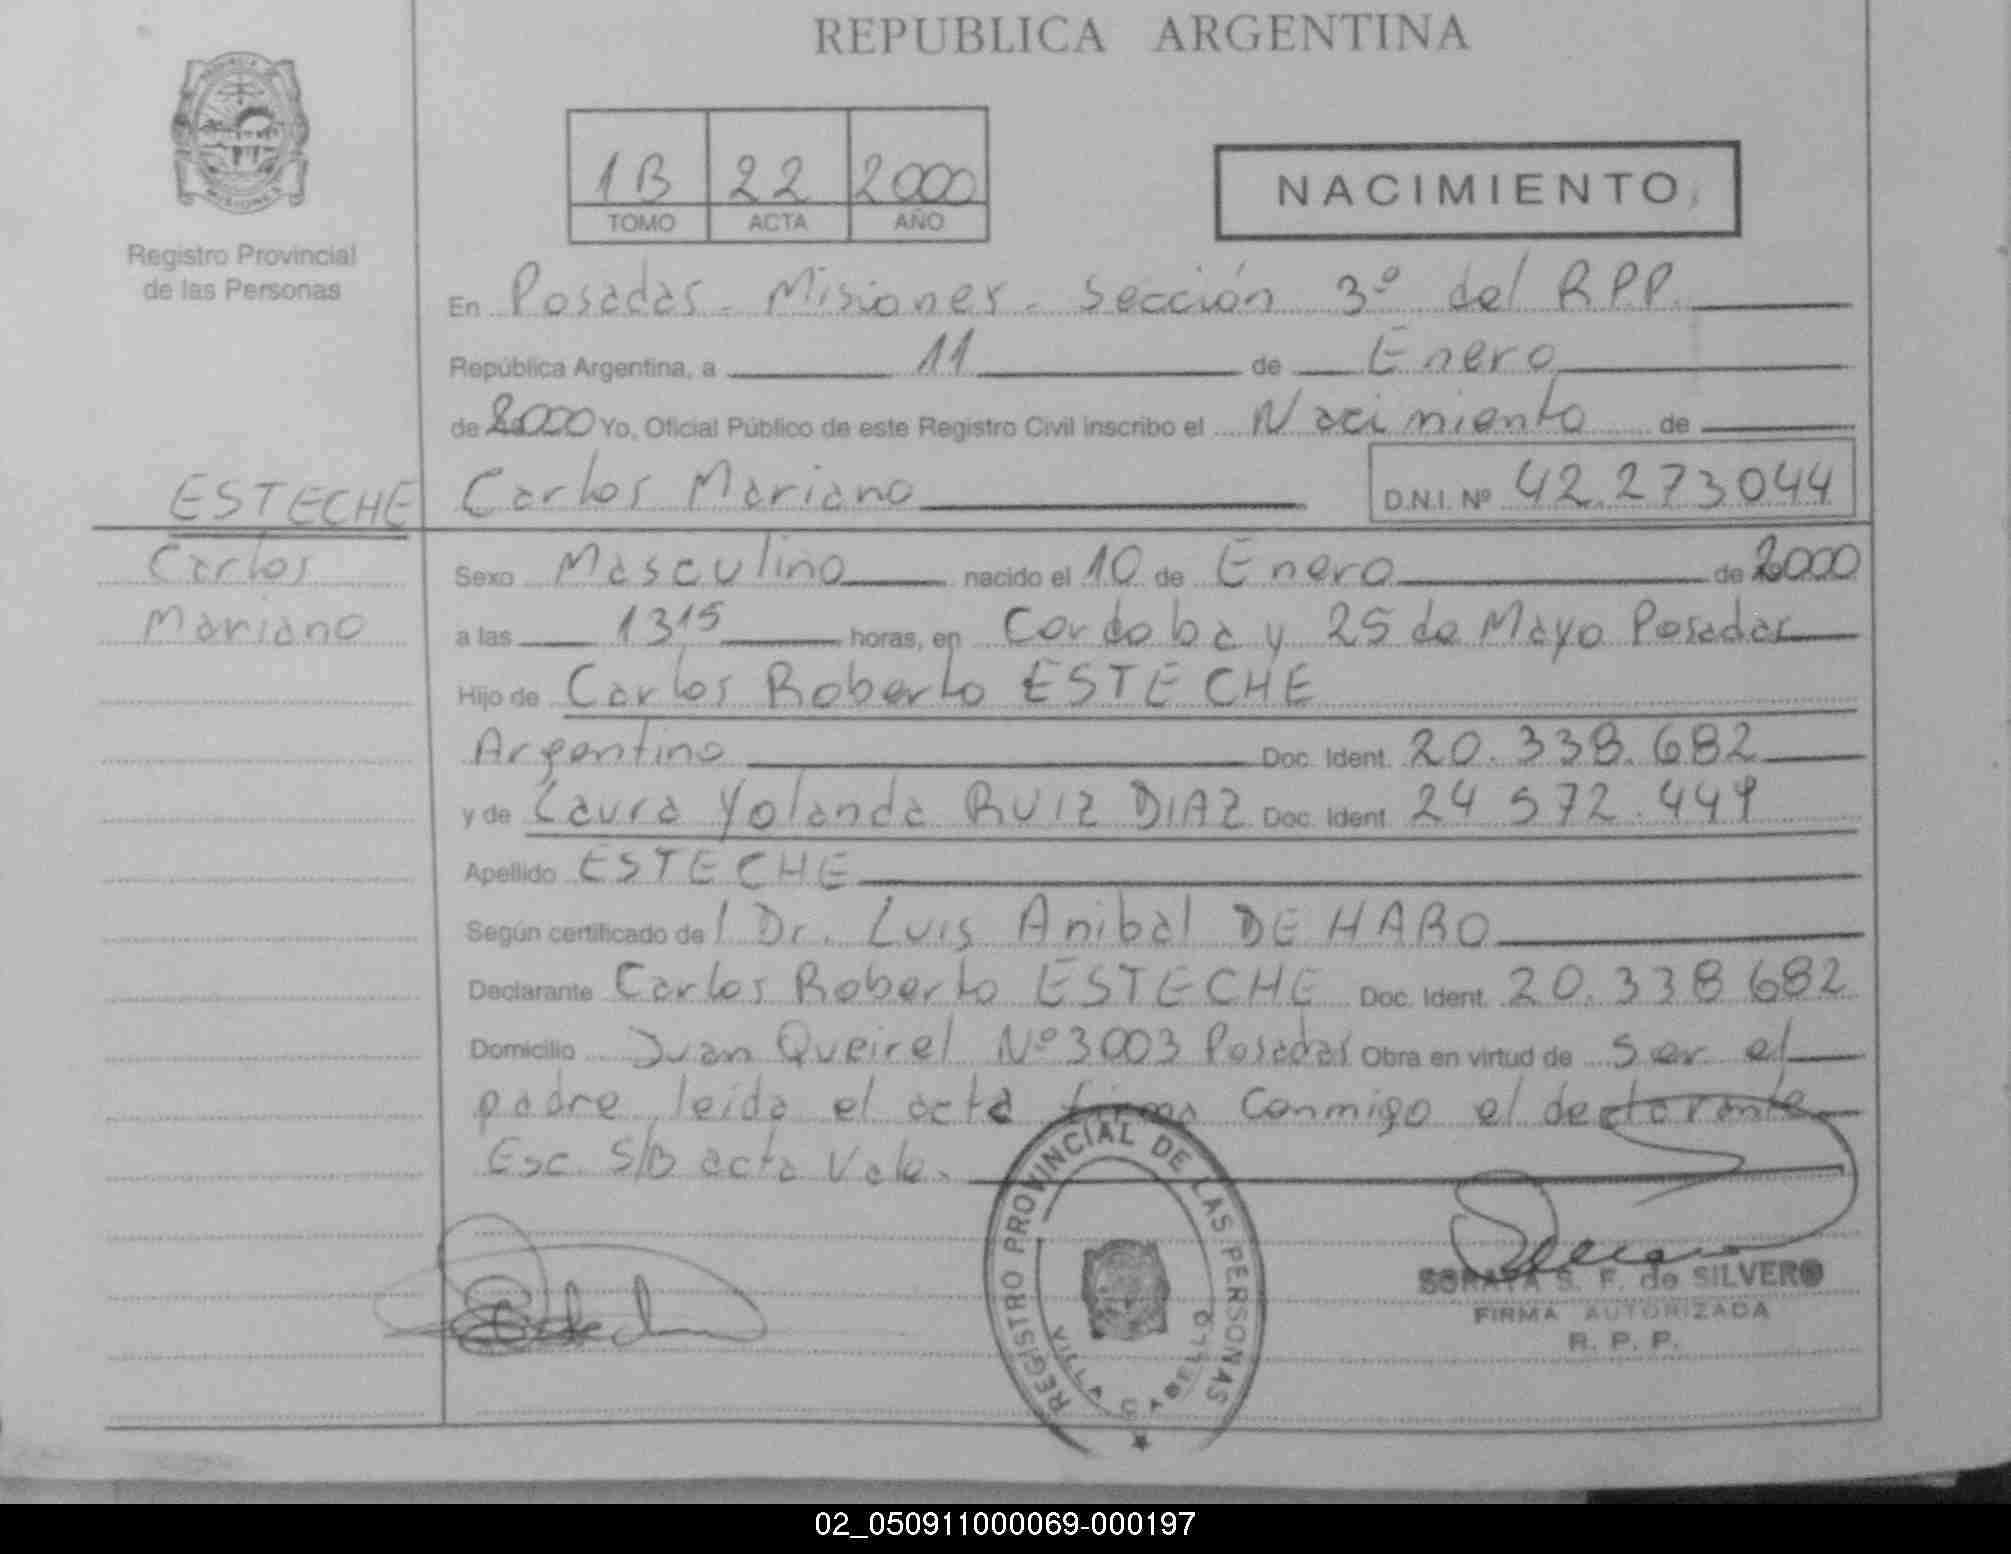 REPUBLICA ARGENTINA
1B 22 2000
TOMO ACTA AÑO
NACIMIENTO
Registro Provincial
de las Personas
En Posadas - Misiones - Sección 3º del R.P.P.
República Argentina, a 11 de Enero
de 2000 Yo, Oficial Público de este Registro Civil inscribo el Nacimiento de
ESTECHE Carlos Mariano D.N.I. Nº 42.273044
Carlos
Mariano
Sexo Masculino nacido el 10 de Enero de 2000
a las 13 15 horas, en Cordoba y 25 de Mayo Posadas
Hijo de Carlos Roberto ESTECHE
Argentino Doc. Ident. 20.338.682
y de Laura Yolanda RUIZ DIAZ Doc. Ident. 24 572.449
Apellido ESTECHE
Según certificado de l Dr. Luis Anibal DE HARO
Declarante Carlos Roberto ESTECHE Doc. Ident. 20.338 682
Domicilio Juan Queirel Nº 3003 Posadas Obra en virtud de ser el
padre leida el acta firma conmigo el declarante
Esc. S/B acta Vale.
REGISTRO PROVINCIAL DE LAS PERSONAS
VILLA CABELLO
SORAYA S. F. de SILVERO
FIRMA AUTORIZADA
R. P. P.
02_050911000069-000197